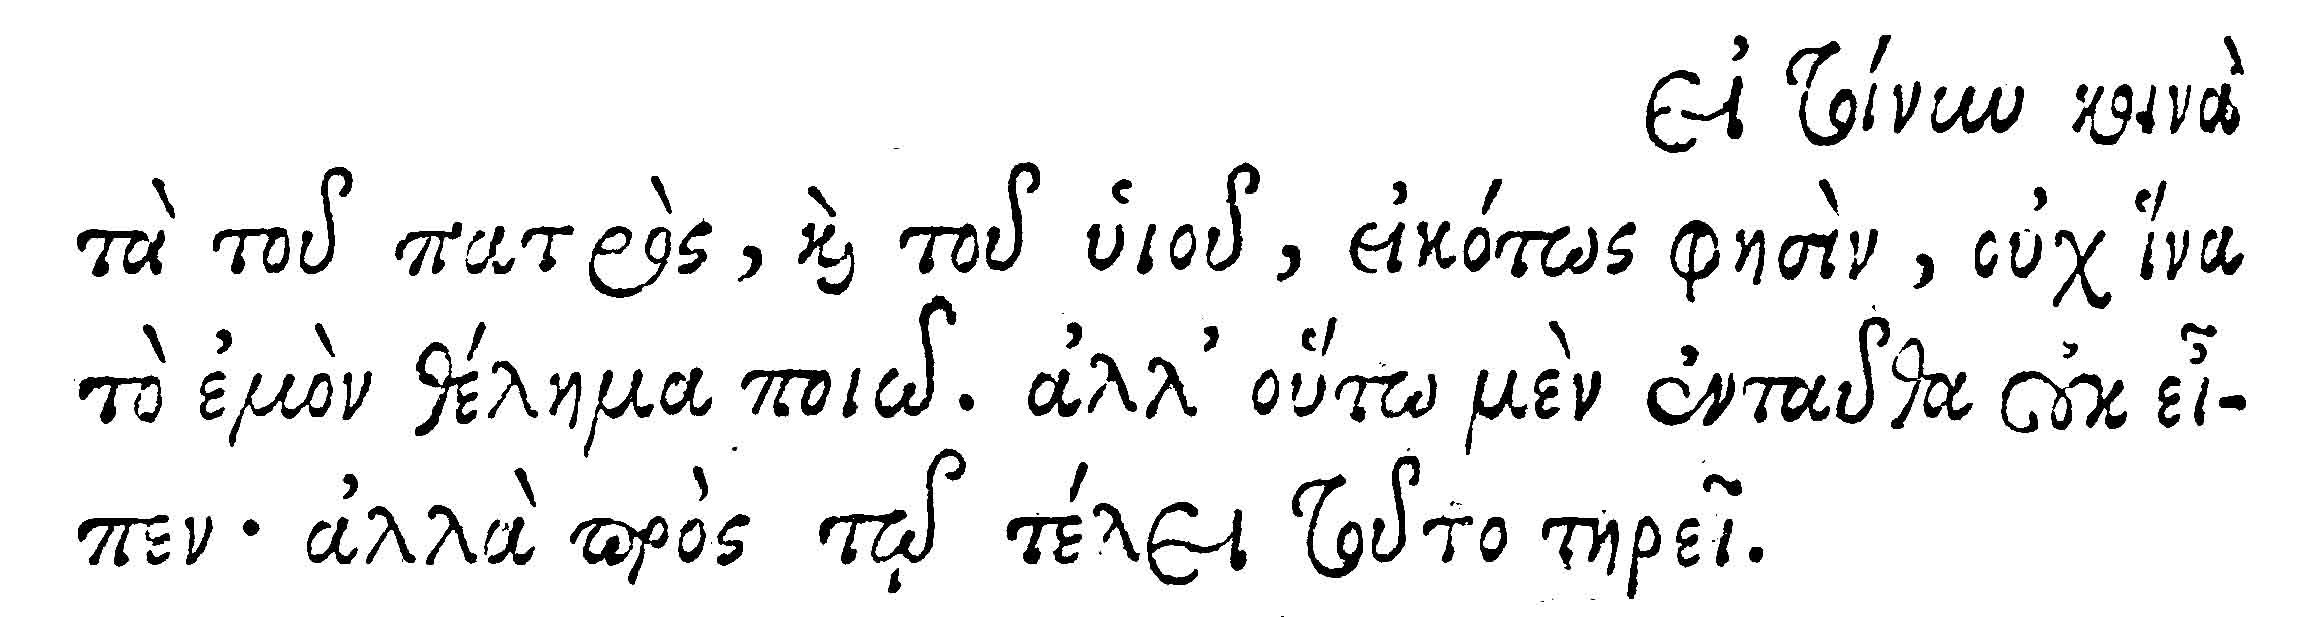 εἰ τοίνυν κοινὰ
τὰ τοῦ πατρὸς, καὶ τοῦ ὑιοῦ, εἰκότως φησὶν, οὐχ ἵνα
τὸ ἐμὸν θέλημα ποιῶ. ἀλλ’ οὕτω μὲν ἐνταῦθα οὐκ εἶ-
πεν· ἀλλὰ πρὸς τῷ τέλει τοῦτο τηρεῖ.